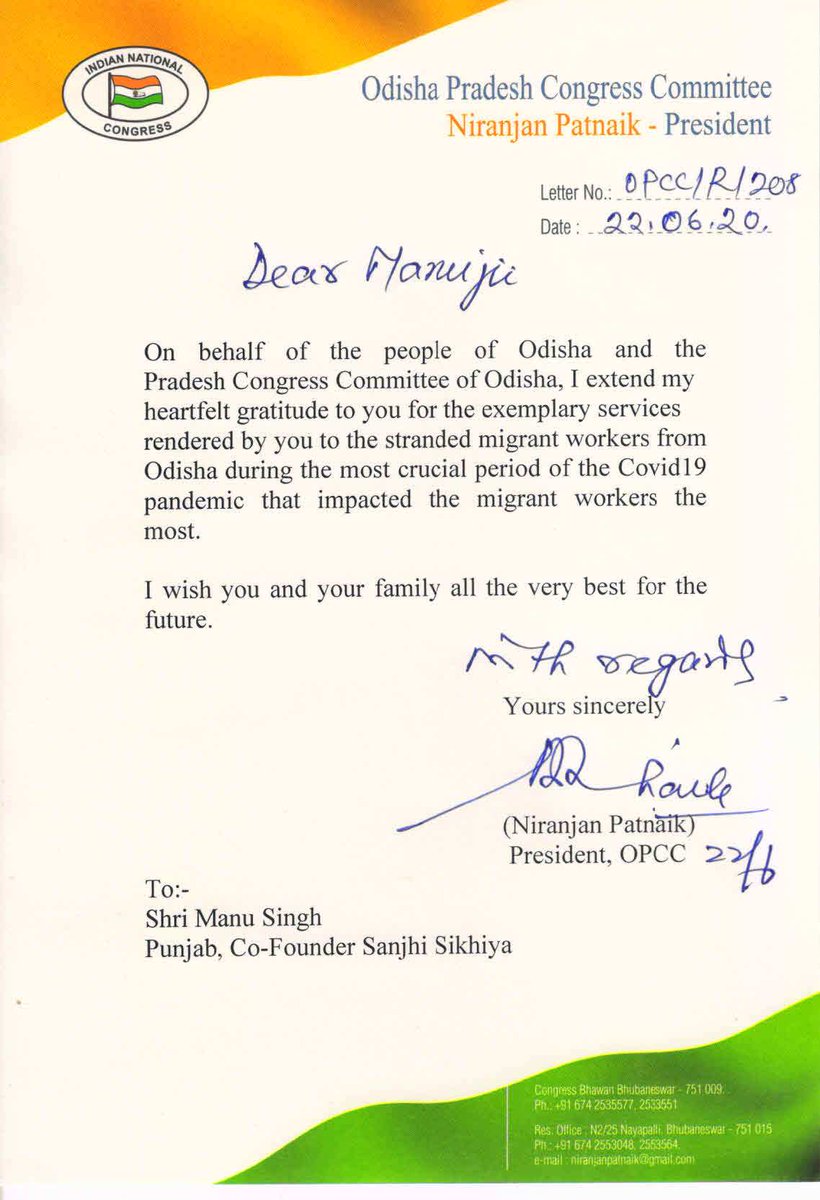 INDIAN NATIONAL
CONGRESS
Odisha Pradesh Congress Committee
Niranjan Patnaik - President
Letter No.: OPCC/R/208
Date : 22.06.20.
Dear Manujii
On behalf of the people of Odisha and the
Pradesh Congress Committee of Odisha, I extend my
heartfelt gratitude to you for the exemplary services
rendered by you to the stranded migrant workers from
Odisha during the most crucial period of the Covid19
pandemic that impacted the migrant workers the
most.
I wish you and your family all the very best for the
future.
With regards
Yours sincerely
(Niranjan Patnaik)
President, OPCC 22/6
To:-
Shri Manu Singh
Punjab, Co-Founder Sanjhi Sikhiya
Congress Bhawan Bhubaneswar - 751 009.
Ph.: +91 674 2535577, 2533551
Res. Office : N2/25 Nayapalli, Bhubaneswar - 751 015
Ph.: +91 674 2553048, 2553564,
e-mail : niranjanpatnaik@gmail.com